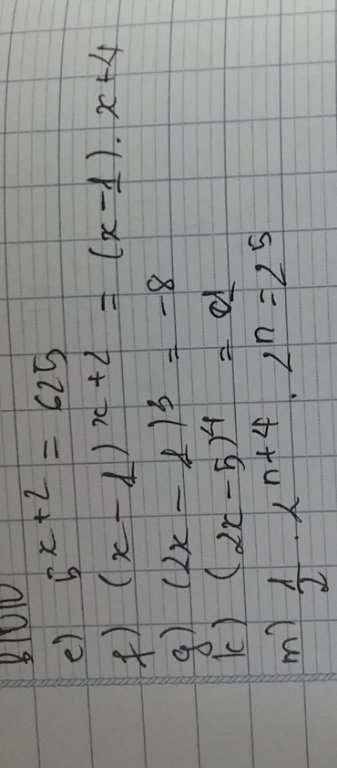 e) 5^{x+2} = 625
f) (x-1)^{x+2} = (x-1).x+4
g) (2x-1)^3 = -8
k) (2x-5)^4 = 1
m) 1/2 . 2^{n+4} . 2^n = 2^5